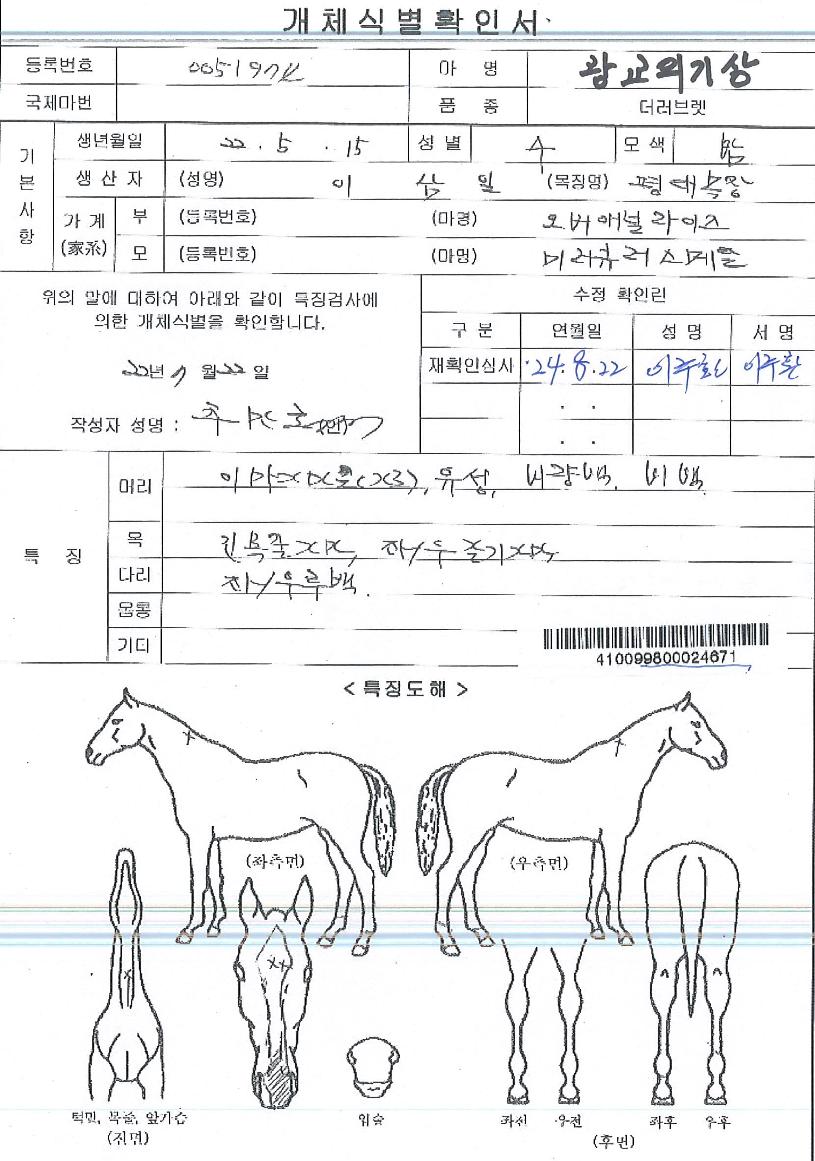 개체식별확인서
등록번호 0051974 마 명 광교의기상
국제마번 품 종 더러브렛
기본사항 생년월일 22. 5 . 15 성 별 수 모 색 밤
생 산 자 (성명) 이 삼 일 (목장명) 평대목장
가 계 (家系) 부 (등록번호) (마명) 오버애널라이즈
모 (등록번호) (마명) 미라큐러스메들
위의 말에 대하여 아래와 같이 특징검사에
의한 개체식별을 확인합니다.
22년 7 월 22 일
작성자 성명 :
수정 확인란
구 분 연월일 성 명 서 명
재확인심사 '24. 8. 22
. .
. .
특 징
머리 유성, 비량백, 비백
목
다리
몸통
기타
410099800024671
< 특징도해 >
(좌측면) (우측면)
턱밑, 목줄, 앞가슴 입술 좌전 우전 좌후 우후
(전면) (후면)